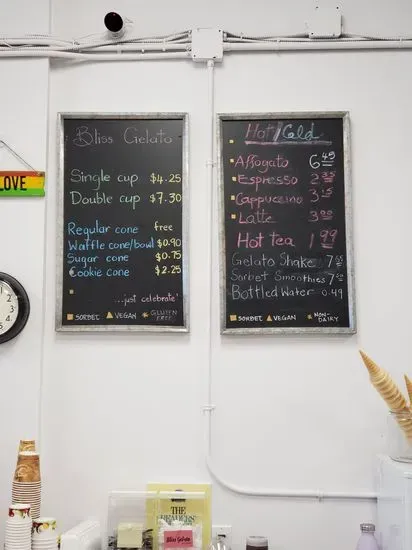 LOVE
Bliss Gelato
Single cup $4.25
Double cup $7.30
Regular cone free
Waffle cone/bowl $0.90
Sugar cone $0.75
Cookie cone $2.25
...just celebrate'
SORBET VEGAN GLUTEN FREE
Hot/Cold
Affogato 6.45
Espresso 2.35
Cappuccino 3.15
Latte
Hot tea 1.99
Gelato Shake
Sorbet Smoothies
Bottled Water 0.49
SORBET VEGAN NON-DAIRY
THE
READERS'
Bliss Gelato